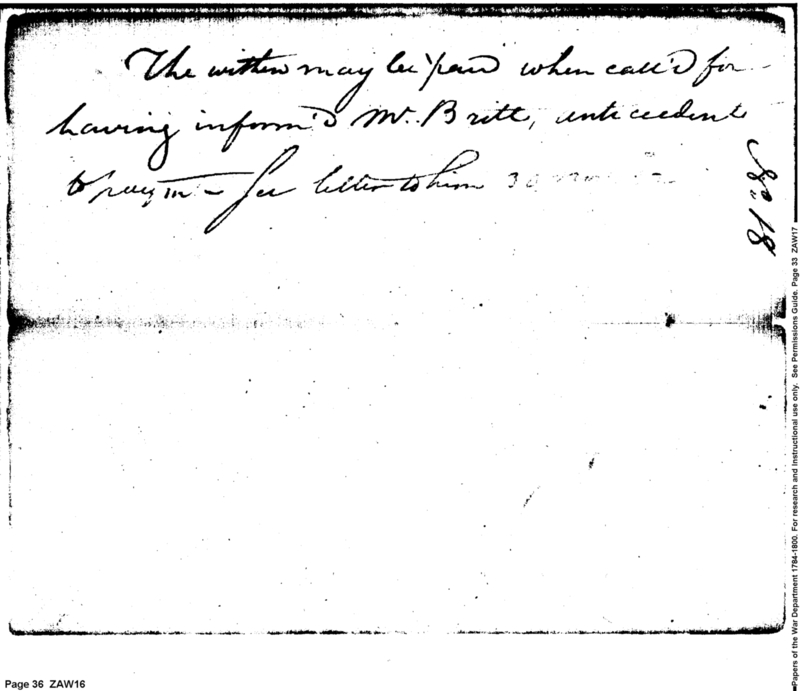 The within may be paid when call'd for
having inform'd Mr. Britt, antecedent
to paym - See letter to him 30
Papers of the War Department 1784-1800. For research and Instructional use only. See Permissions Guide. Page 33 ZAW17
Page 36 ZAW16